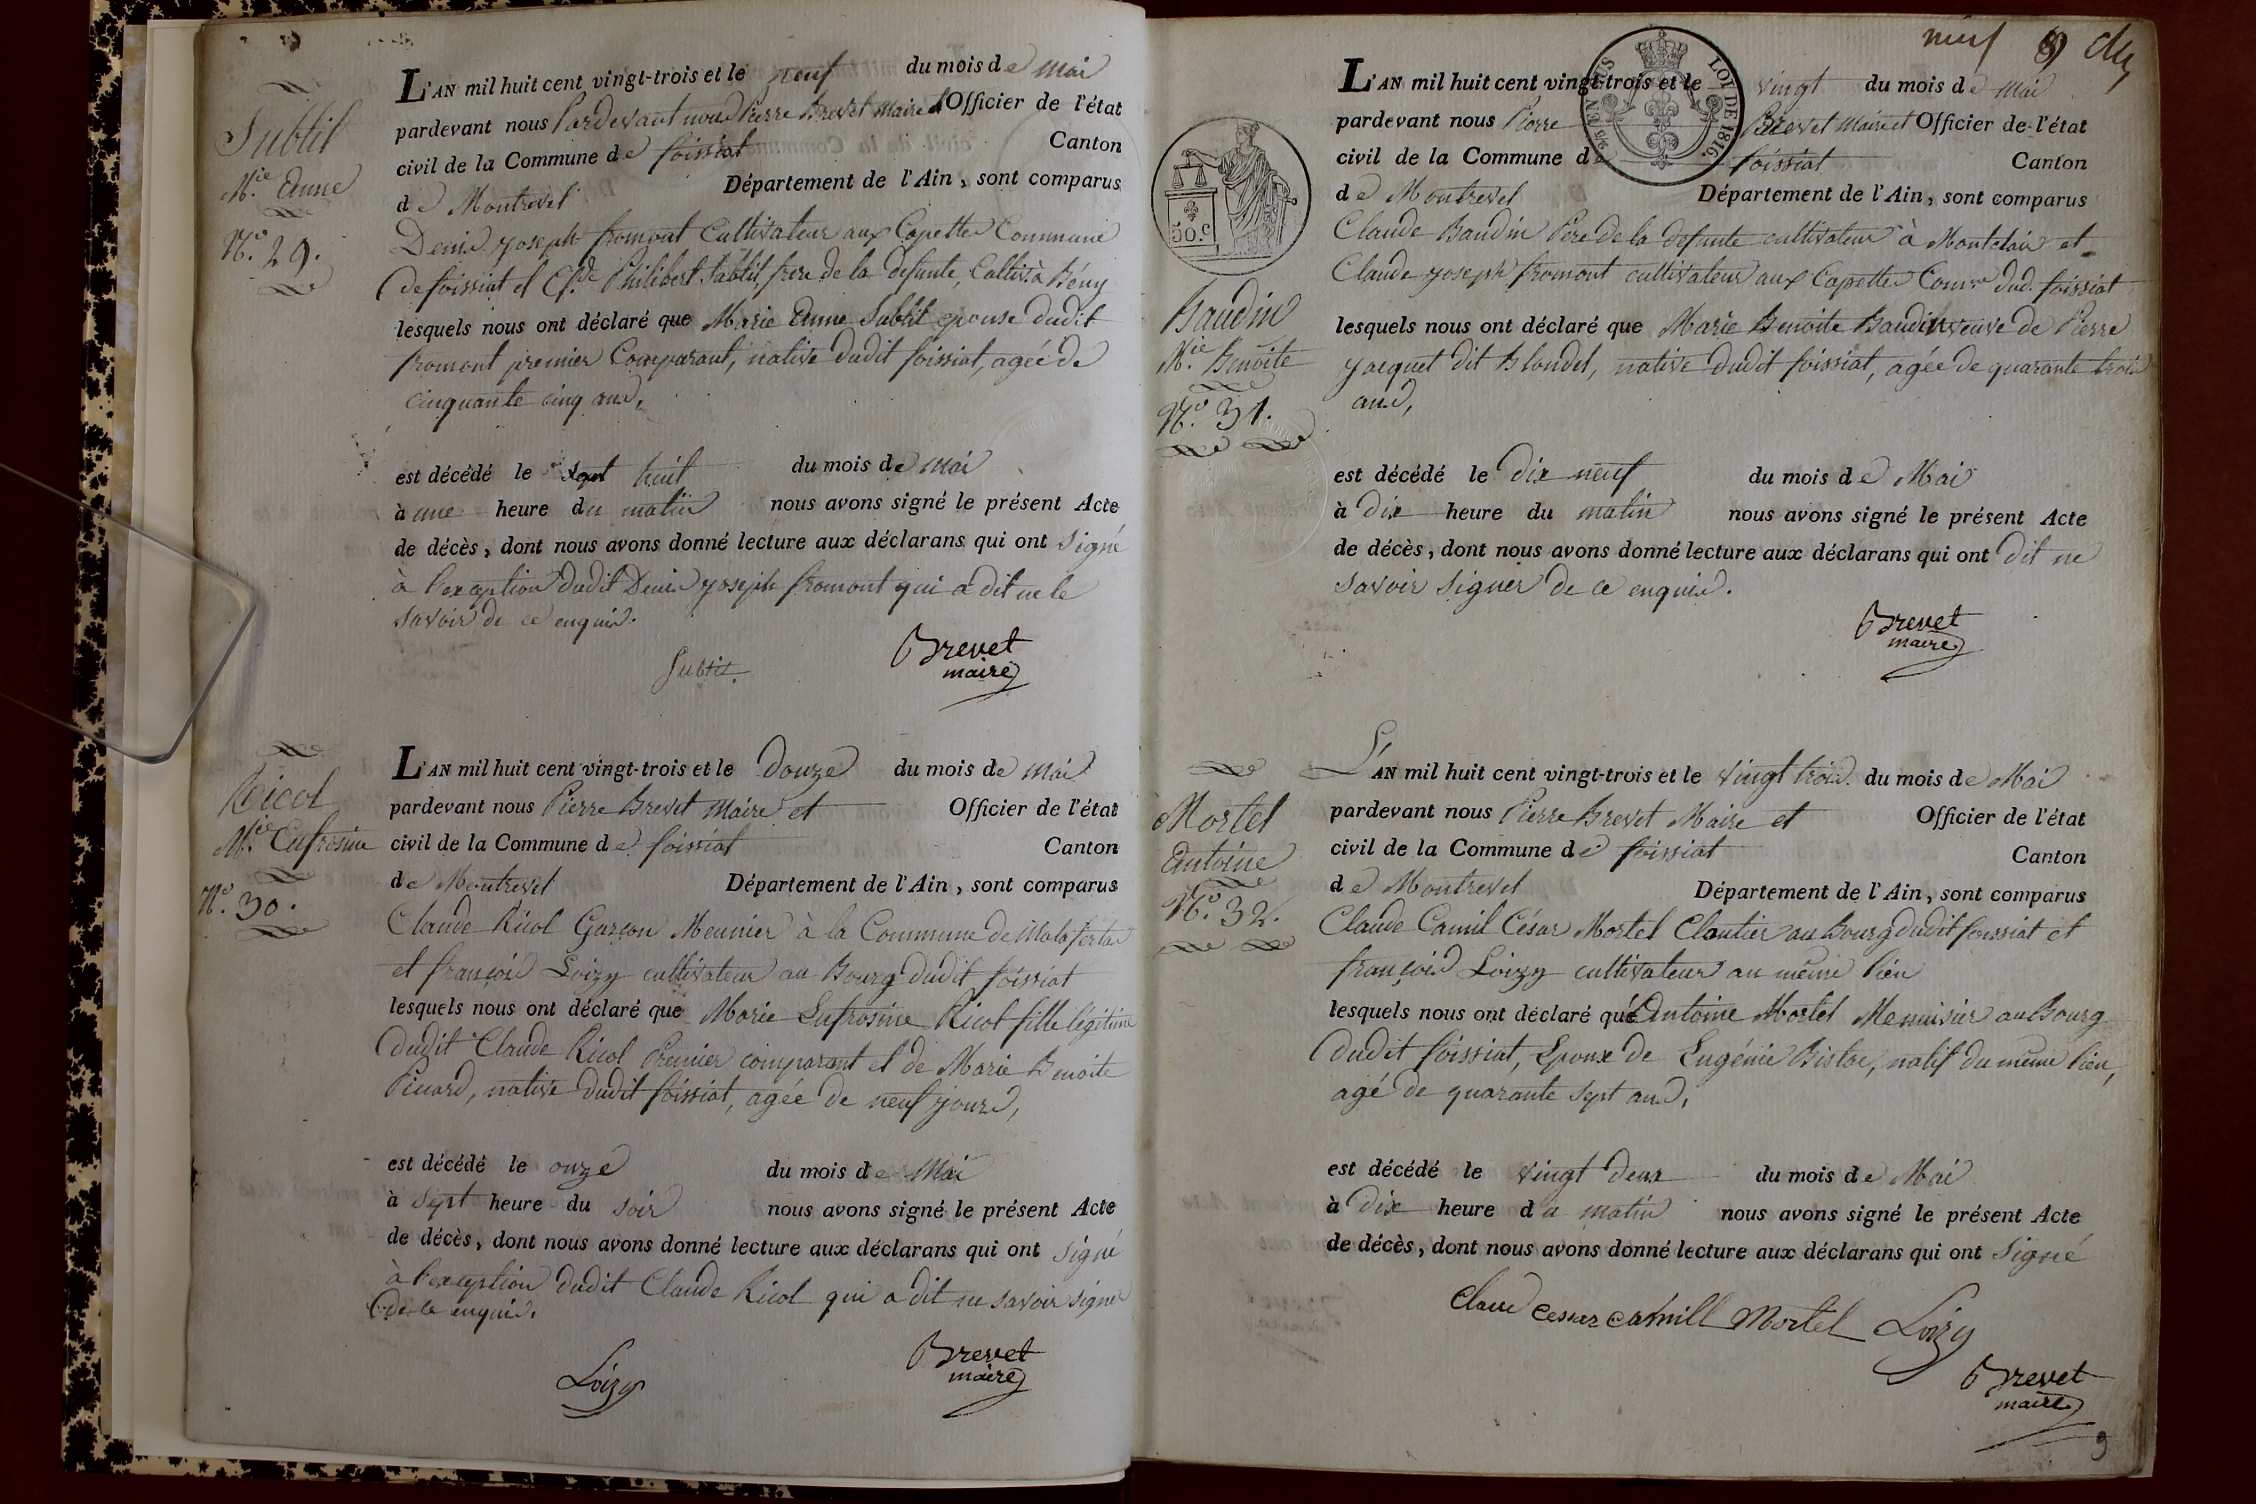 Subtil
M.ie Anne
N.o 29.
L'AN mil huit cent vingt-trois et le neuf du mois de Mai
pardevant nous Pardevant nous Pierre Brevet Maire et Officier de l'état
civil de la Commune de foissiat Canton
de Montrevel Département de l'Ain, sont comparus
Denis Joseph fromont Cultivateur aux Capettes Commune
de foissiat et Cl.de Philibert Subtil, frere de la défunte, Cultiv.r à Bény
lesquels nous ont déclaré que Marie Anne Subtil epouse dudit
fromont premier Comparant, native dudit foissiat, agée de
cinquante cinq ans,
est décédé le sept huit du mois de Mai
à une heure du matin nous avons signé le présent Acte
de décès, dont nous avons donné lecture aux déclarans qui ont signé
à l'exception dudit Denis Joseph fromont qui a dit ne le
savoir de ce enquis.
Subtil. Brevet
maire
Ricol
M.ie Eufrosine
N.o 30.
L'AN mil huit cent vingt-trois et le Douze du mois de Mai
pardevant nous Pierre Brevet Maire et Officier de l'état
civil de la Commune de foissiat Canton
de Montrevel Département de l'Ain, sont comparus
Claude Ricol Garçon Meunier à la Commune de Malafertas
et françois Loizy cultivateur au Bourg dudit foissiat
lesquels nous ont déclaré que Marie Eufrosine Ricol fille légitime
dudit Claude Ricol Premier comparant et de Marie Benoite
Picard, native dudit foissiat, agée de neuf jours,
est décédé le onze du mois de Mai
à sept heure du soir nous avons signé le présent Acte
de décès, dont nous avons donné lecture aux déclarans qui ont signé
à l'exception dudit Claude Ricol qui a dit ne savoir signer
de ce enquis.
Loizy Brevet
maire
neuf 9
LOI DE 1816.
50.c
Baudin
M.ie Benoite
N.o 31.
L'AN mil huit cent vingt-trois et le vingt du mois de Mai
pardevant nous Pierre Brevet Maire et Officier de l'état
civil de la Commune d foissiat Canton
de Montrevel Département de l'Ain, sont comparus
Claude Baudin Pere de la defunte cultivateur à Montclair et
Claude Joseph fromont cultivateur aux Capettes Comne dud. foissiat
lesquels nous ont déclaré que Marie Benoite Baudin veuve de Pierre
Jacquet dit Blondel, native dudit foissiat, agée de quarante trois
ans,
est décédé le Dix neuf du mois de Mai
à Dix heure du matin nous avons signé le présent Acte
de décès, dont nous avons donné lecture aux déclarans qui ont dit ne
savoir signer de ce enquis.
Brevet
maire
Mortel
Antoine
N.o 32.
L'AN mil huit cent vingt-trois et le vingt trois du mois de Mai
pardevant nous Pierre Brevet Maire et Officier de l'état
civil de la Commune de foissiat Canton
de Montrevel Département de l'Ain, sont comparus
Claude Camil César Mortel Cloutier au Bourg dudit foissiat et
françois Loizy cultivateur au même lieu
lesquels nous ont déclaré que Antoine Mortel Menuisier au Bourg
dudit foissiat, Epoux de Eugénie Bistac, natif du même lieu,
agé de quarante sept ans,
est décédé le vingt deux du mois de Mai
à Dix heure du matin nous avons signé le présent Acte
de décès, dont nous avons donné lecture aux déclarans qui ont Signé
Claud Cessar Camill Mortel Loizy
Brevet
maire
9